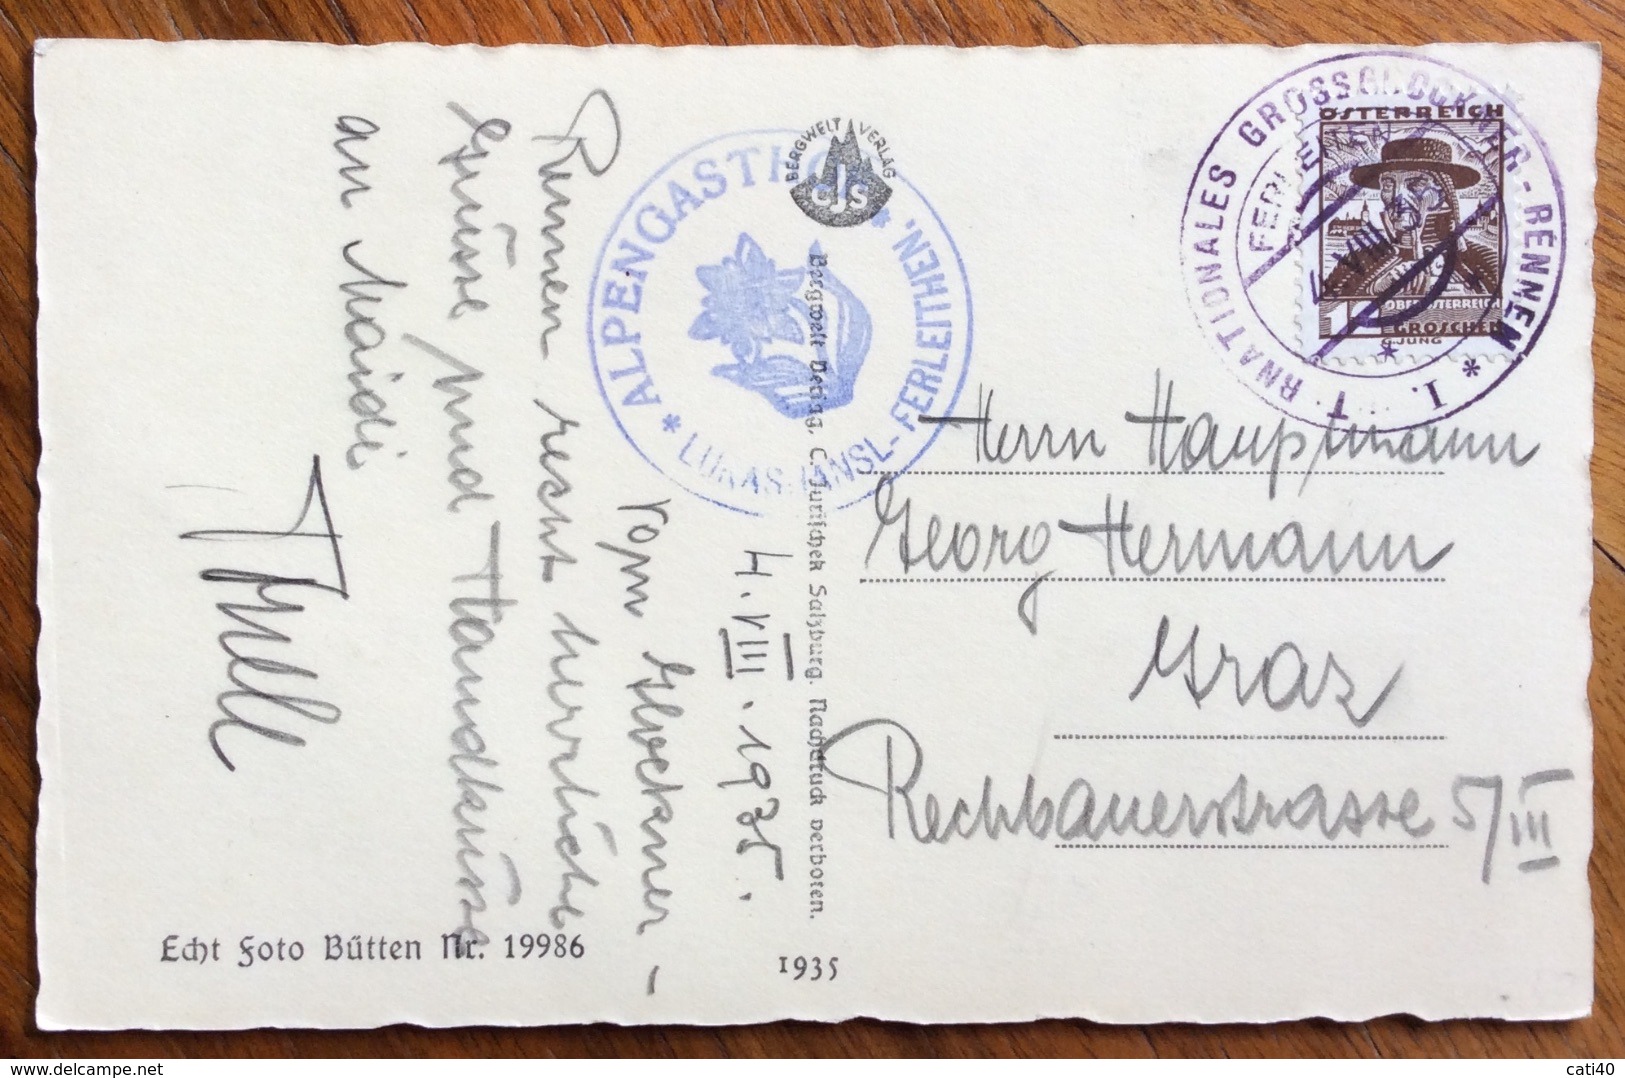 4.VIII.1935.
Vom Glockner-
Rennen recht herrliche
Grüsse und Handküsse
an Maidi
ALPENGASTHOF
* LUKAS HANSL-FERLEITHEN. *
BERGWELT VERLAG
CJS
Bergwelt Verlag, C. Jurischek Salzburg. Nachdruck verboten.
I. INTERNATIONALES GROSSGLOCKNER-RENNEN *
FERLEITEN
4.VIII.35
ÖSTERREICH
OBERÖSTERREICH
GROSCHEN
G.JUNG
Herrn Hauptmann
Georg Hermann
Graz
Rechbauerstrasse 5/III
Echt Foto Bütten Nr. 19986
1935
cati40